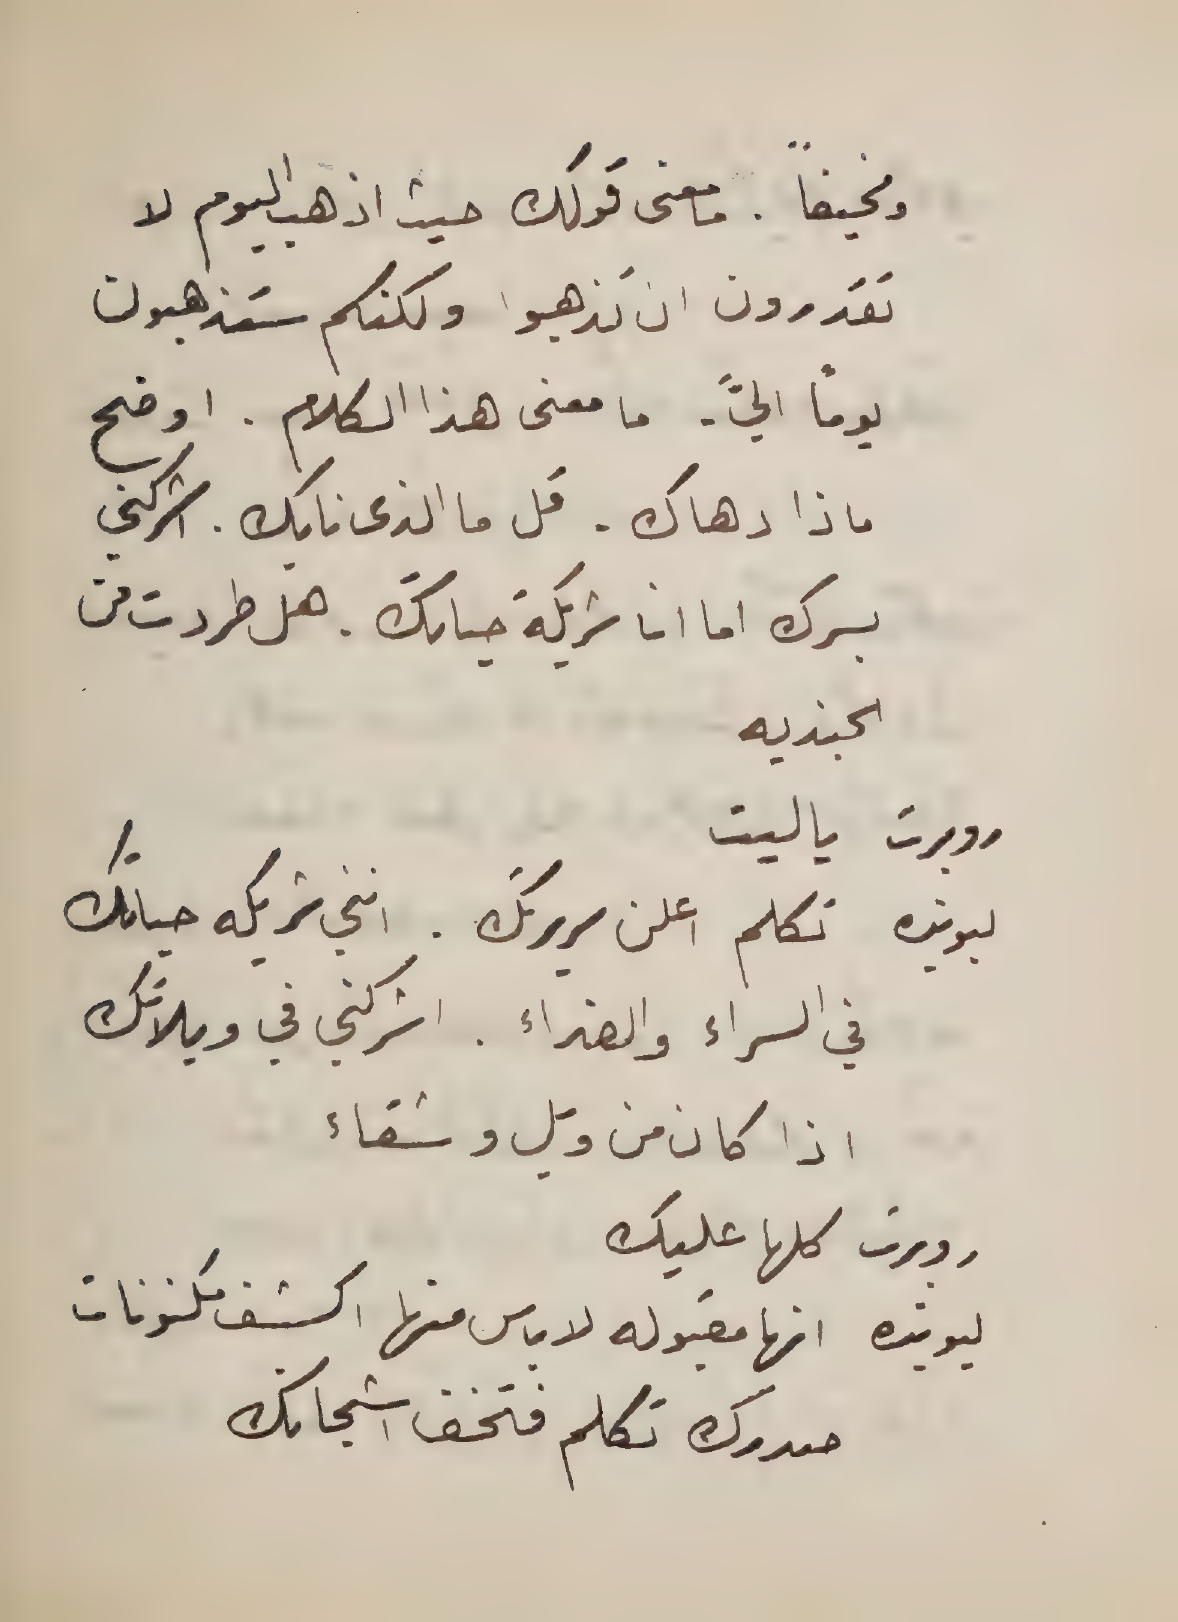 ومخيفاً . ما معنى قولك حيث اذهب اليوم لا
تقدرون ان تذهبوا ولكنكم ستذهبون
يوماً اليَّ . ما معنى هذا الكلام . اوضح
ماذا دهاك . قل ما الذى نابك . اشركني
بسرك اما انا شريكة حياتك . هل طردت من
الجنديه
روبرت ياليت
ليونده تكلم اعلن سريرتك . انني شريكه حياتك
في السراء والضراء . اشركني في ويلاتك
اذا كان من ويل وشقاء
روبرت كلها عليك
ليونده انها مقبوله لا باس منها اكشف مكنونات
صدرك تكلم فتخف اشجانك